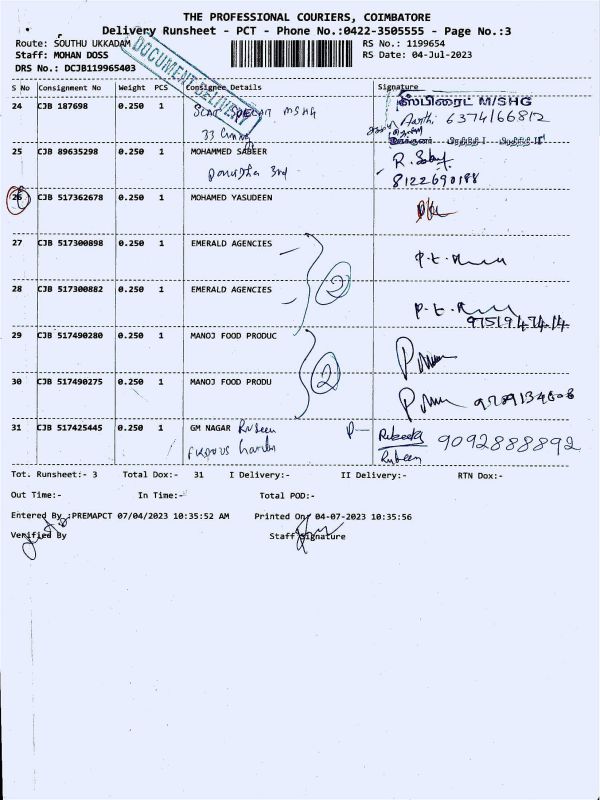 THE PROFESSIONAL COURIERS, COIMBATORE
Delivery Runsheet - PCT - Phone No.:0422-3505555 - Page No.:3
Route: SOUTHU UKKADAM RS No.: 1199654
Staff: MOHAN DOSS RS Date: 04-Jul-2023
DRS No.: DCJCB119965403
DOCUMENT DELIVERY
S No Consignment No Weight PCS Consignee Details Signature
24 CJB 187698 0.250 1 MSHG ஸ்பிரைட் M/SHG
33 Aarthi 6374166812
25 CJB 89635298 0.250 1 MOHAMMED SABEER R.
3rd 8122690188
26 CJB 517362678 0.250 1 MOHAMED YASUDEEN
27 CJB 517300898 0.250 1 EMERALD AGENCIES P.t.
2
28 CJB 517300882 0.250 1 EMERALD AGENCIES P.t.
9751947414
29 CJB 517490280 0.250 1 MANOJ FOOD PRODUC
2
30 CJB 517490275 0.250 1 MANOJ FOOD PRODU 9789134808
31 CJB 517425445 0.250 1 GM NAGAR Rubeen P- 9092888892
Rubeen
Tot. Runsheet:- 3 Total Dox:- 31 I Delivery:- II Delivery:- RTN Dox:-
Out Time:- In Time:- Total POD:-
Entered By :PREMAPCT 07/04/2023 10:35:52 AM Printed On: 04-07-2023 10:35:56
Verified By Staff Signature